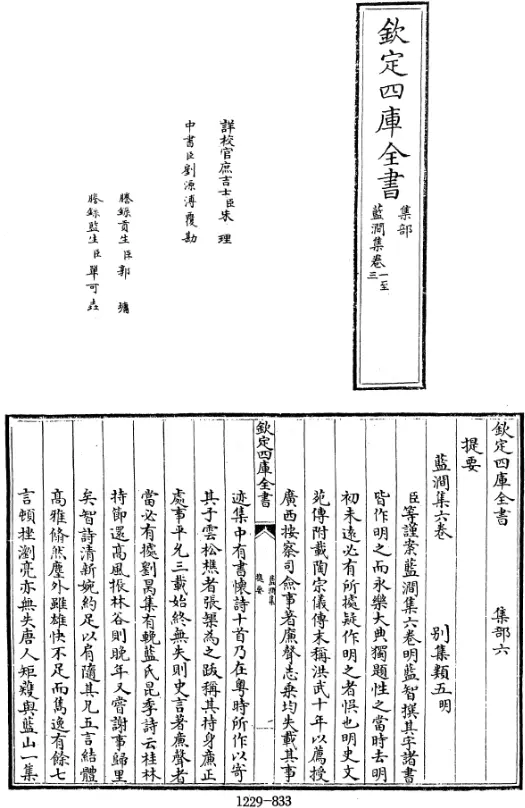 欽定四庫全書
集部
藍澗集卷一至三
詳校官庶吉士臣朱理
中書臣劉源溥覆勘
謄錄貢生臣郭墉
謄錄監生臣單可垚
欽定四庫全書 集部六
提要
藍澗集六卷 別集類五明
臣等謹案藍澗集六卷明藍智撰其字諸書
皆作明之而永樂大典獨題性之當時去明
初未遠必有所據疑作明之者悞也明史文
苑傳附載陶宗儀傳末稱洪武十年以薦授
廣西按察司僉事著廉聲志乘均失載其事
欽定四庫全書
藍澗集
提要
一
迹集中有書懷詩十首乃在粤時所作以寄
其于雲松樵者張榘為之跋稱其持身廉正
處事平允三載始終無失則史言著廉聲者
當必有據劉昺集有輓藍氏昆季詩云桂林
持節還高風振林谷則晚年又嘗謝事歸里
矣智詩清新婉約足以肩隨其兄五言結體
高雅翛然塵外雖雄快不足而雋逸有餘七
言頓挫瀏亮亦無失唐人矩矱與藍山一集
1229-833